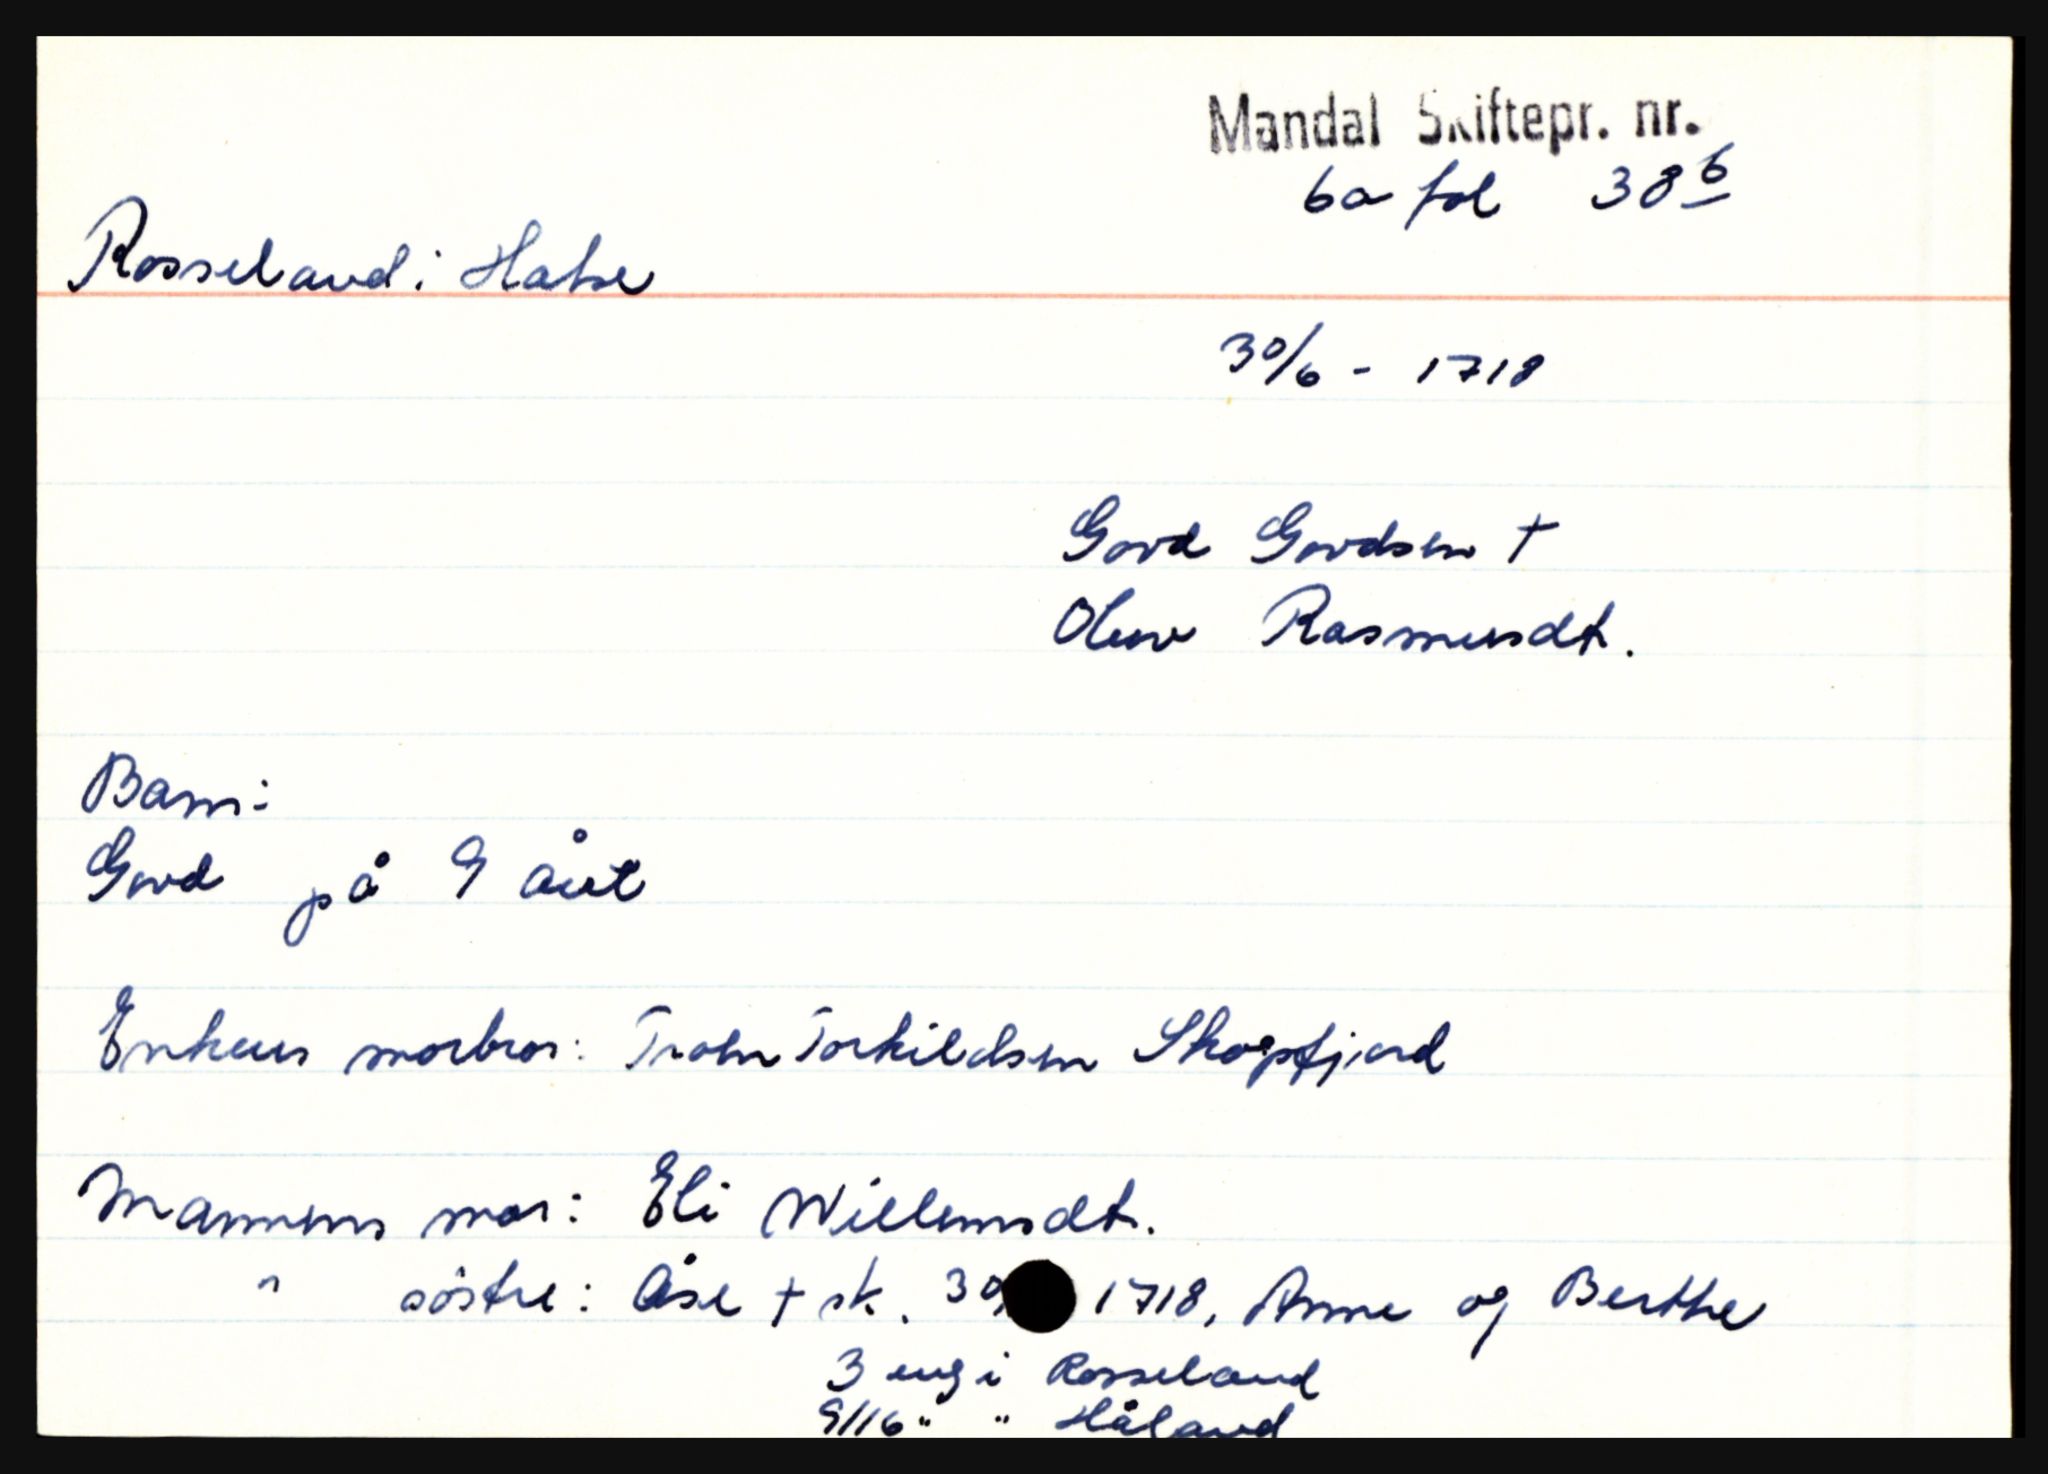 Mandal Skiftepr. nr.
6a fol 38b
Rosseland i Halse
30/6 - 1718
Gord Gordsen †
Olene Rasmusdt.
Barn:
Gord på 9 året
Enkens morbror: Trohn Torkildsen Skogsfjord
Mannens mor: Eli Willumsdt.
" söstre: Åse † sk. 30/ 1718, Anne og Berthe
3 eng i Rosseland
9/16 " " Håland